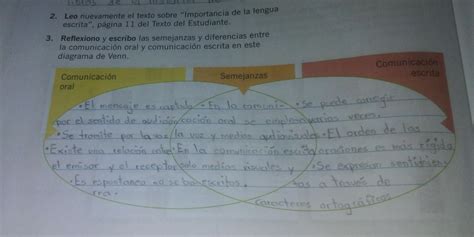 2. Leo nuevamente el texto sobre “Importancia de la lengua
escrita”, página 11 del Texto del Estudiante.
3. Reflexiono y escribo las semejanzas y diferencias entre
la comunicación oral y comunicación escrita en este
diagrama de Venn.
Comunicación
oral
Semejanzas
Comunicación
escrita
• El mensaje es captado • En la comuni- • Se puede corregir
por el sentido de audición cación oral se varias veces.
• Se tramite por la voz la voz y medios audiovisuales • El orden de las
• Existe una relación En la comunicación escrita oraciones es más rígido
el emisor y el receptor solo medios visuales y • Se expresan
• Es espontanea no se escritos. a traves de
caracteres ortográficos